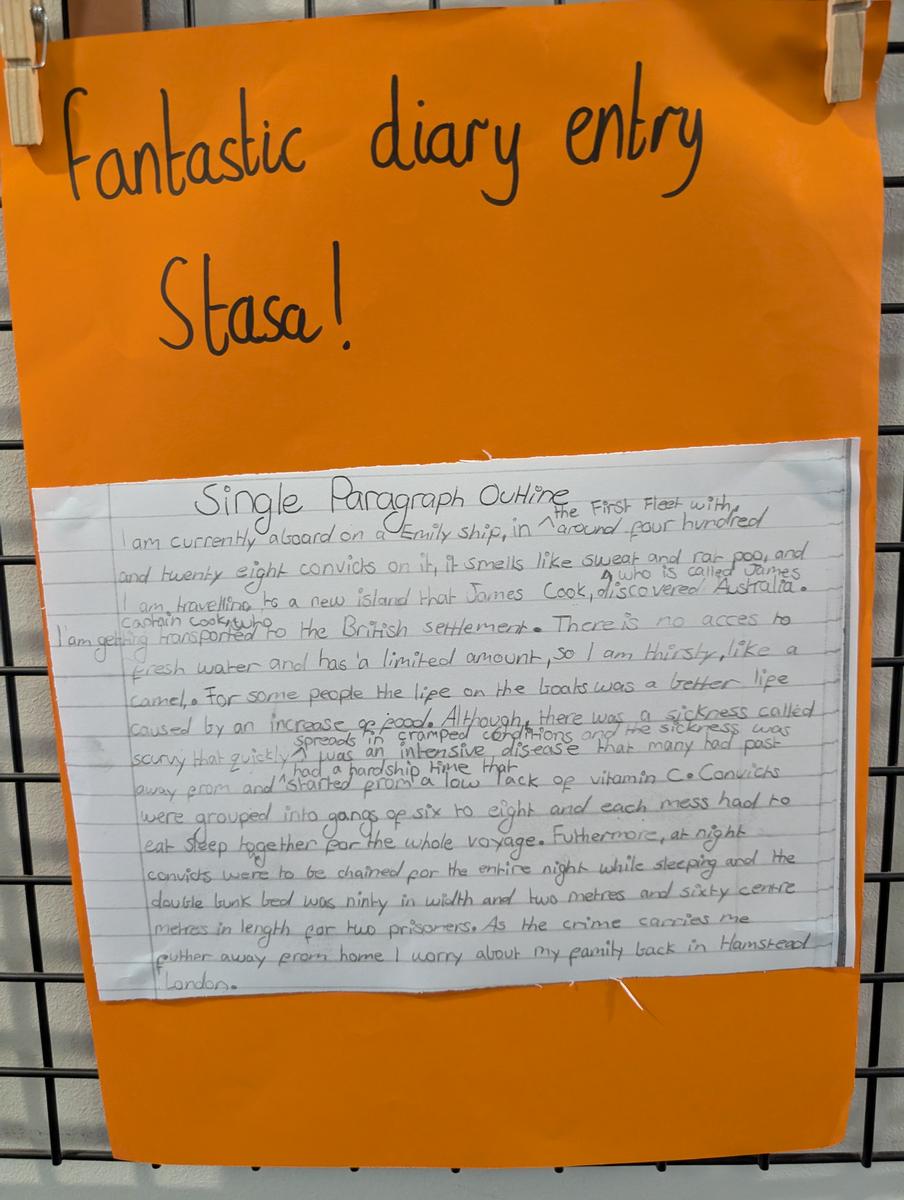 Fantastic diary entry
Stasa!
Single Paragraph Outline
the First Fleet with,
I am currently aboard on a Emily ship, in ^ around four hundred
and twenty eight convicts on it, it smells like sweat and rat poo, and
^ who is called James
I am travelling to a new island that James Cook, discovered Australia.
Captain Cook, who
I am getting transported to the British settlement. There is no acces to
fresh water and has a limited amount, so I am thirsty, like a
camel. For some people the life on the boats was a better life
caused by an increase of food. Although, there was a sickness called
spreads in cramped conditions and the sickness was
scurvy that quickly ^ was an intensive disease that many had past
had a hardship time that
away from and ^ started from a low lack of vitamin C. Convicts
were grouped into gangs of six to eight and each mess had to
eat sleep together for the whole voyage. Futhermore, at night
convicts were to be chained for the entire night while sleeping and the
double bunk bed was ninty in width and two metres and sixty centre
metres in length for two prisoners. As the crime carries me
futher away from home I worry about my family back in Hamstead
London.